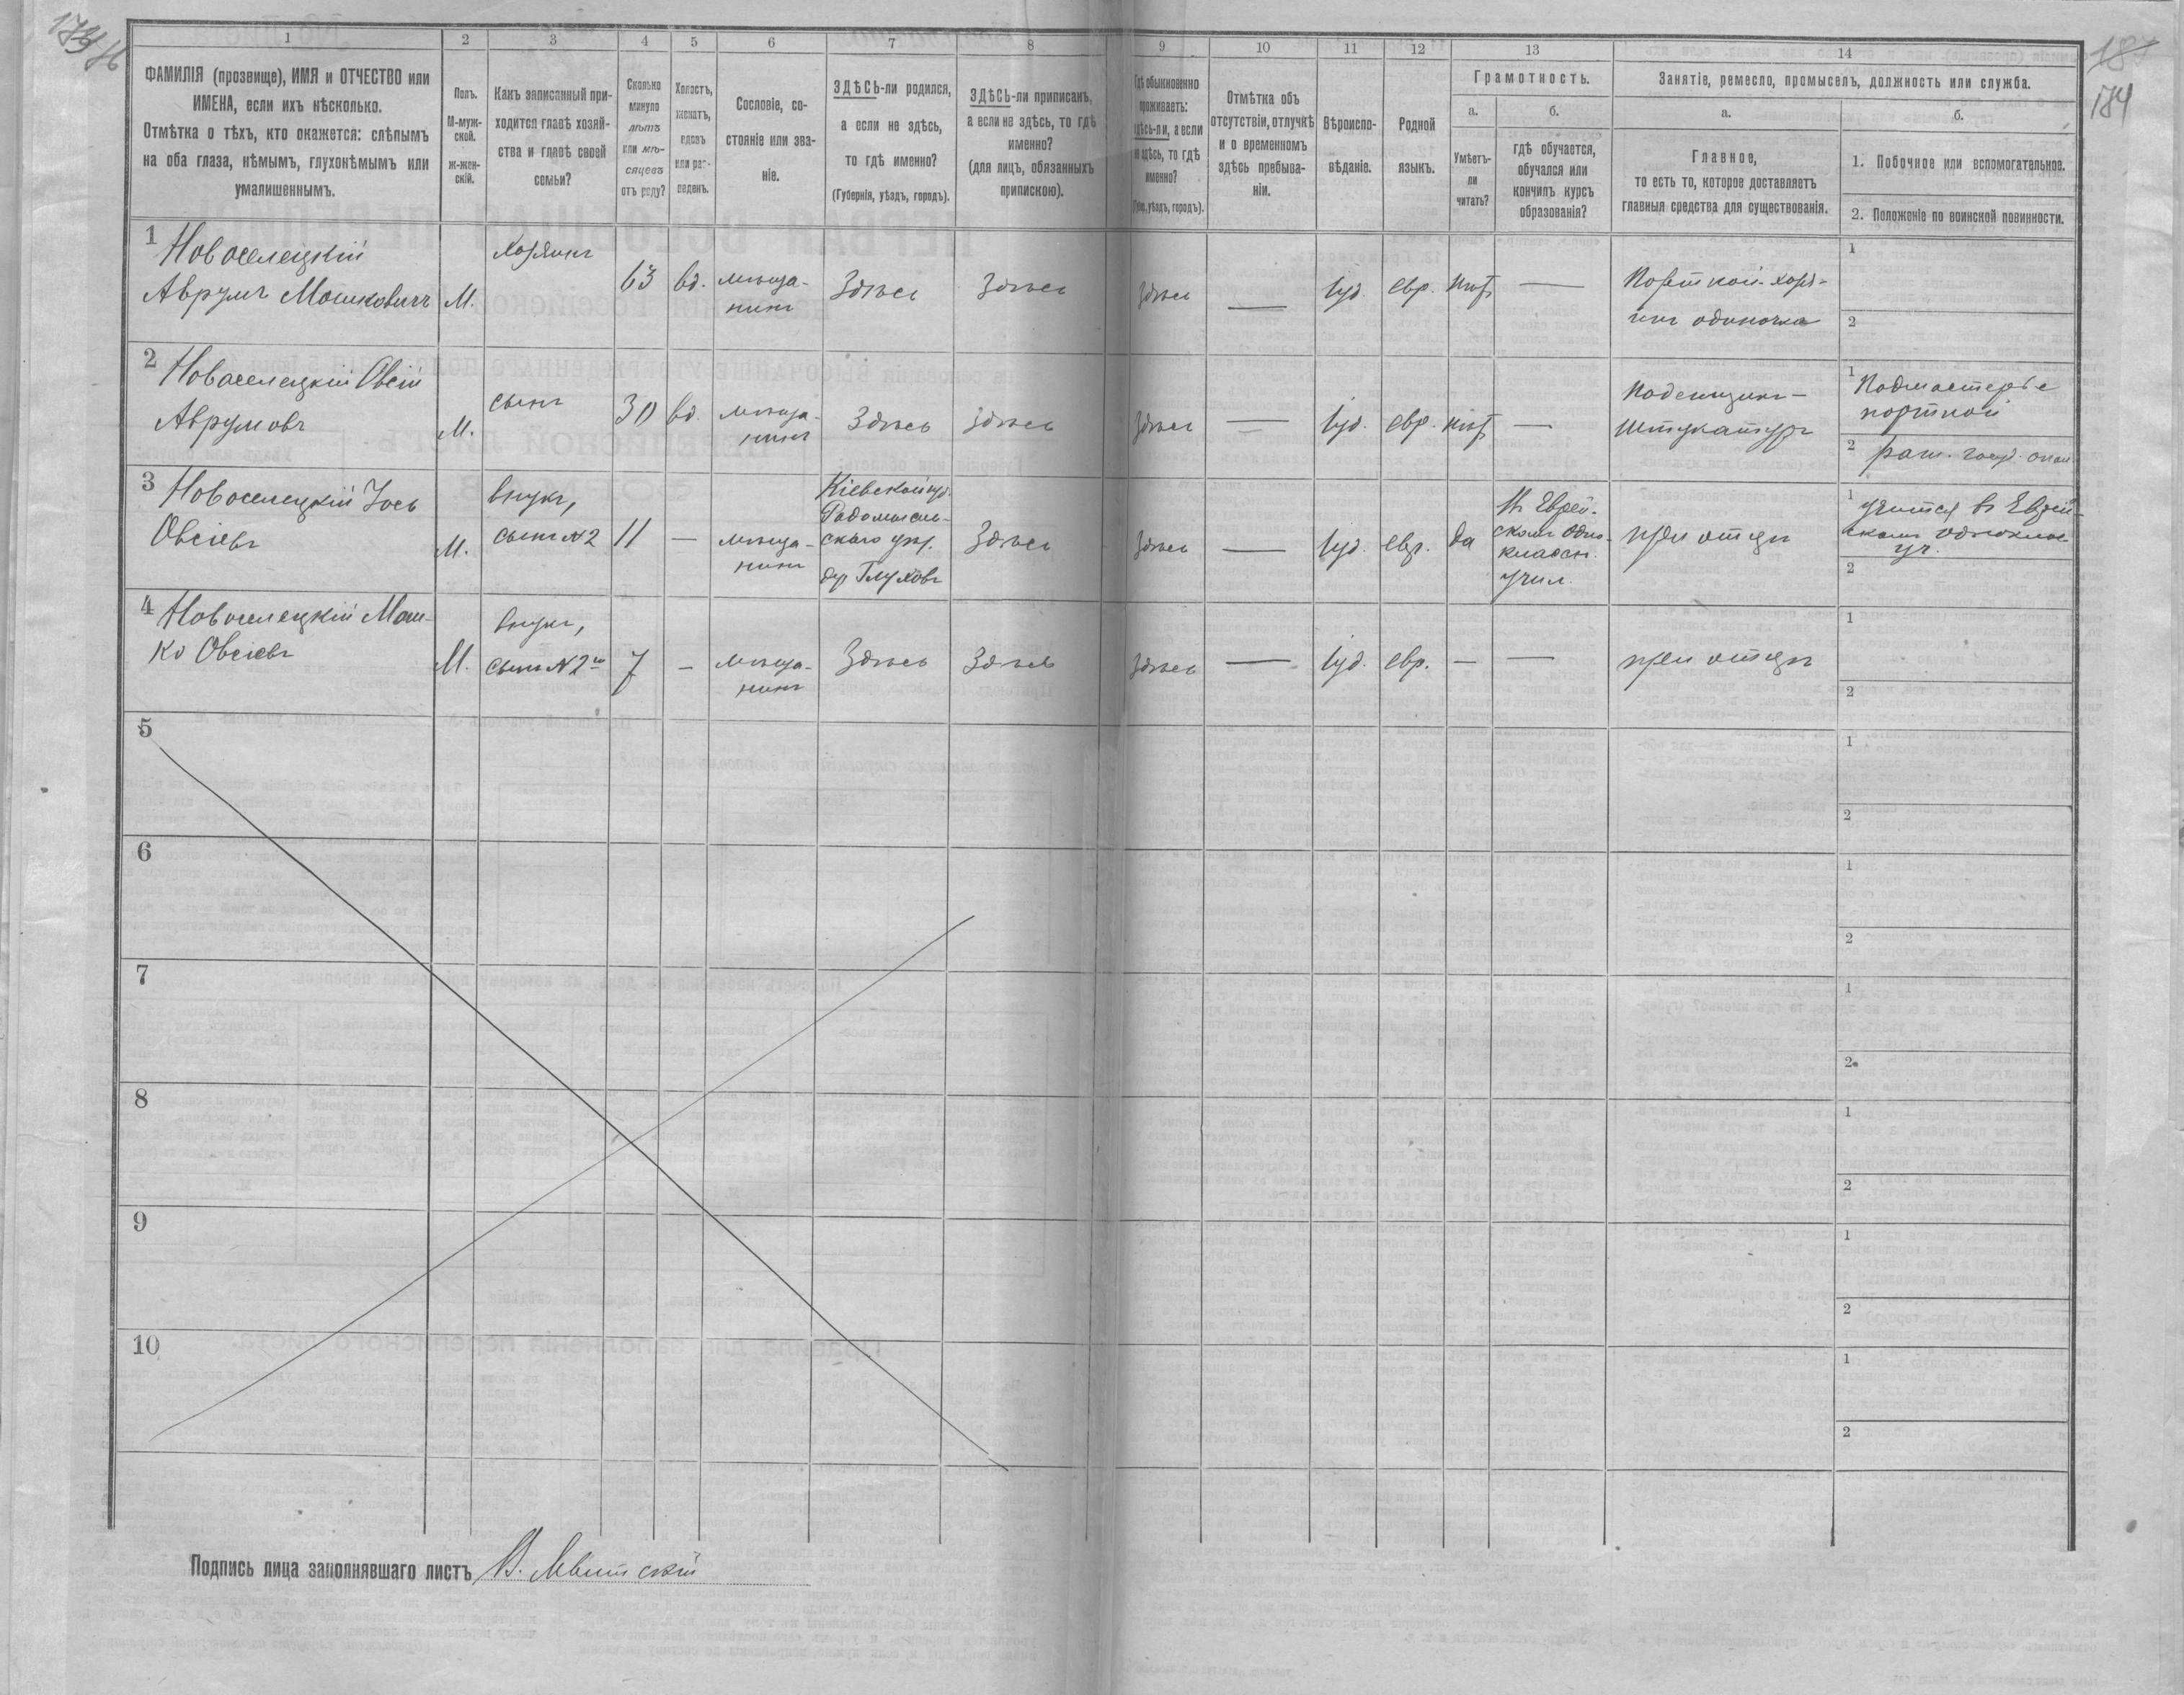 1
2
3
4
5
6
7
8
9
10
11
12
13
14
ФАМИЛІЯ (прозвище), ИМЯ и ОТЧЕСТВО или
ИМЕНА, если ихъ нѣсколько.
Отмѣтка о тѣхъ, кто окажется: слѣпымъ
на оба глаза, нѣмымъ, глухонѣмымъ или
умалишеннымъ.
Полъ.
М-муж-
ской.
Ж-жен-
скій.
Какъ записанный при-
ходится главѣ хозяй-
ства и главѣ своей
семьи?
Сколько
минуло
лѣтъ
или мѣ-
сяцевъ
отъ роду?
Холостъ,
женатъ,
вдовъ
или раз-
веденъ.
Сословіе, со-
стояніе или зва-
ніе.
ЗДѢСЬ-ли родился,
а если не здѣсь,
то гдѣ именно?
(Губернія, уѣздъ, городъ).
ЗДѢСЬ-ли приписанъ,
а если не здѣсь, то гдѣ
именно?
(для лицъ, обязанныхъ
припискою).
Гдѣ обыкновенно
проживаетъ:
здѣсь-ли, а если
не здѣсь, то гдѣ
именно?
(Губ., уѣздъ, городъ).
Отмѣтка объ
отсутствіи, отлучкѣ
и о временномъ
здѣсь пребыва-
ніи.
Вѣроиспо-
вѣданіе.
Родной
языкъ.
Грамотность.
а.
Умѣетъ-
ли
читать?
б.
гдѣ обучается,
обучался или
кончилъ курсъ
образованія?
Занятіе, ремесло, промыселъ, должность или служба.
а.
Главное,
то есть то, которое доставляетъ
главныя средства для существованія.
б.
1. Побочное или вспомогательное.
2. Положеніе по воинской повинности.
1 Новоселецкій
Аврумъ Мошковичъ М. Хозяинъ 63 вд. мѣща-
нинъ Здѣсь Здѣсь Здѣсь — Іуд. евр. нѣт — Портной-хозя-
инъ одиночка
1
2
2 Новоселецкій Овсій
Аврумовъ М. сынъ 30 вд. мѣща-
нинъ Здѣсь Здѣсь Здѣсь — Іуд. евр. нѣт — Поденщикъ-
штукатуръ
1 Подмастерье
портной
2 рат. госуд. опол.
3 Новоселецкій Іось
Овсіевъ М. внукъ,
сынъ №2 11 — мѣща-
нинъ
Кіевской губ.
Радомысль-
скаго уѣз.
дер Глуховъ
Здѣсь Здѣсь — Іуд. евр. да
Въ Еврей-
скомъ одно-
классн.
учил.
при отцѣ
1 учится въ Еврей-
скомъ однокласс
уч.
2
4 Новоселецкій Мош-
ко Овсіевъ М. внукъ,
сынъ №2го 7 — мѣща-
нинъ Здѣсь Здѣсь Здѣсь — Іуд. евр. — — при отцѣ
1
2
5
1
2
6
1
2
7
1
2
8
1
2
9
1
2
10
1
2
184
Подпись лица заполнявшаго листъ